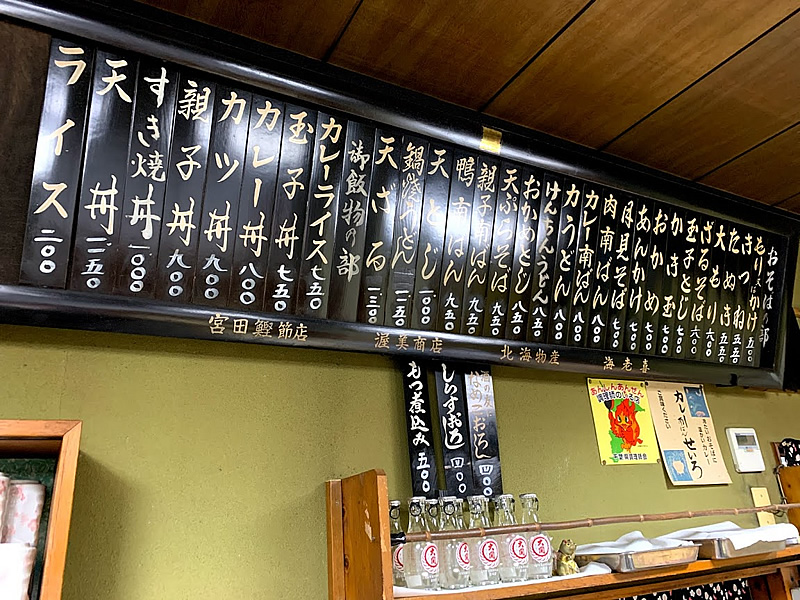 おそばの部
もり かけ 五〇〇
きつね 五五〇
たぬき 五五〇
大もり 六〇〇
ざるそば 六〇〇
玉子とじ 六五〇
かき玉 七〇〇
おかめ 七〇〇
あんかけ 七〇〇
月見そば 七〇〇
肉南ばん 八〇〇
カレー南ばん 八〇〇
力うどん 八〇〇
けんちんうどん 八五〇
おかめとじ 八五〇
天ぷらそば 八五〇
親子南ばん 九五〇
鴨南ばん 九五〇
天とじ 一、〇〇〇
鍋焼うどん 一、二五〇
天ざる 一、三〇〇
御飯物の部
カレーライス 七五〇
玉子丼 七五〇
カレー丼 八〇〇
カツ丼 九〇〇
親子丼 九〇〇
すき焼丼 一、〇〇〇
天丼 一、一五〇
ライス 二〇〇
宮田鰹節店
渥美商店
北海物産
海老喜
なめこおろし 四〇〇
しらすおろし 四〇〇
もつ煮込み 五〇〇
あんしんあんぜん
調理師のいるみせ
カレーせいろ
大関